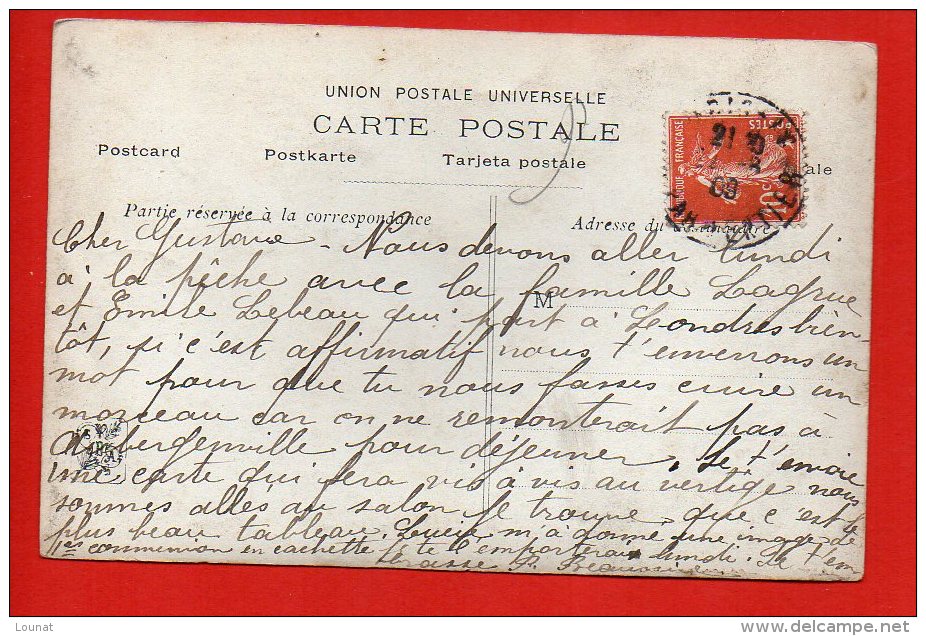 UNION POSTALE UNIVERSELLE
CARTE POSTALE
Postcard Postkarte Tarjeta postale
Partie réservée à la correspondance
Adresse du destinataire
POSTES
10c
21
09
M
Cher Gustave - Nous devons aller lundi
à la pêche avec la famille Lagrue
et Emile Lebeau qui part à Londres bien
tôt, si c'est affirmatif nous t'enverrons un
mot pour que tu nous fasses cuire un
morceau car on ne remonterait pas à
Aubergenville pour déjeuner. Je t'envoie
une carte qui fera vis à vis au vertige nous
sommes allés au salon je trouve que c'est le
plus beau tableau. Lucie m'a donné une image de
1ère communion en cachette je te l'emporterai lundi. Je t'em
brasse
Lounat
delcampe.net